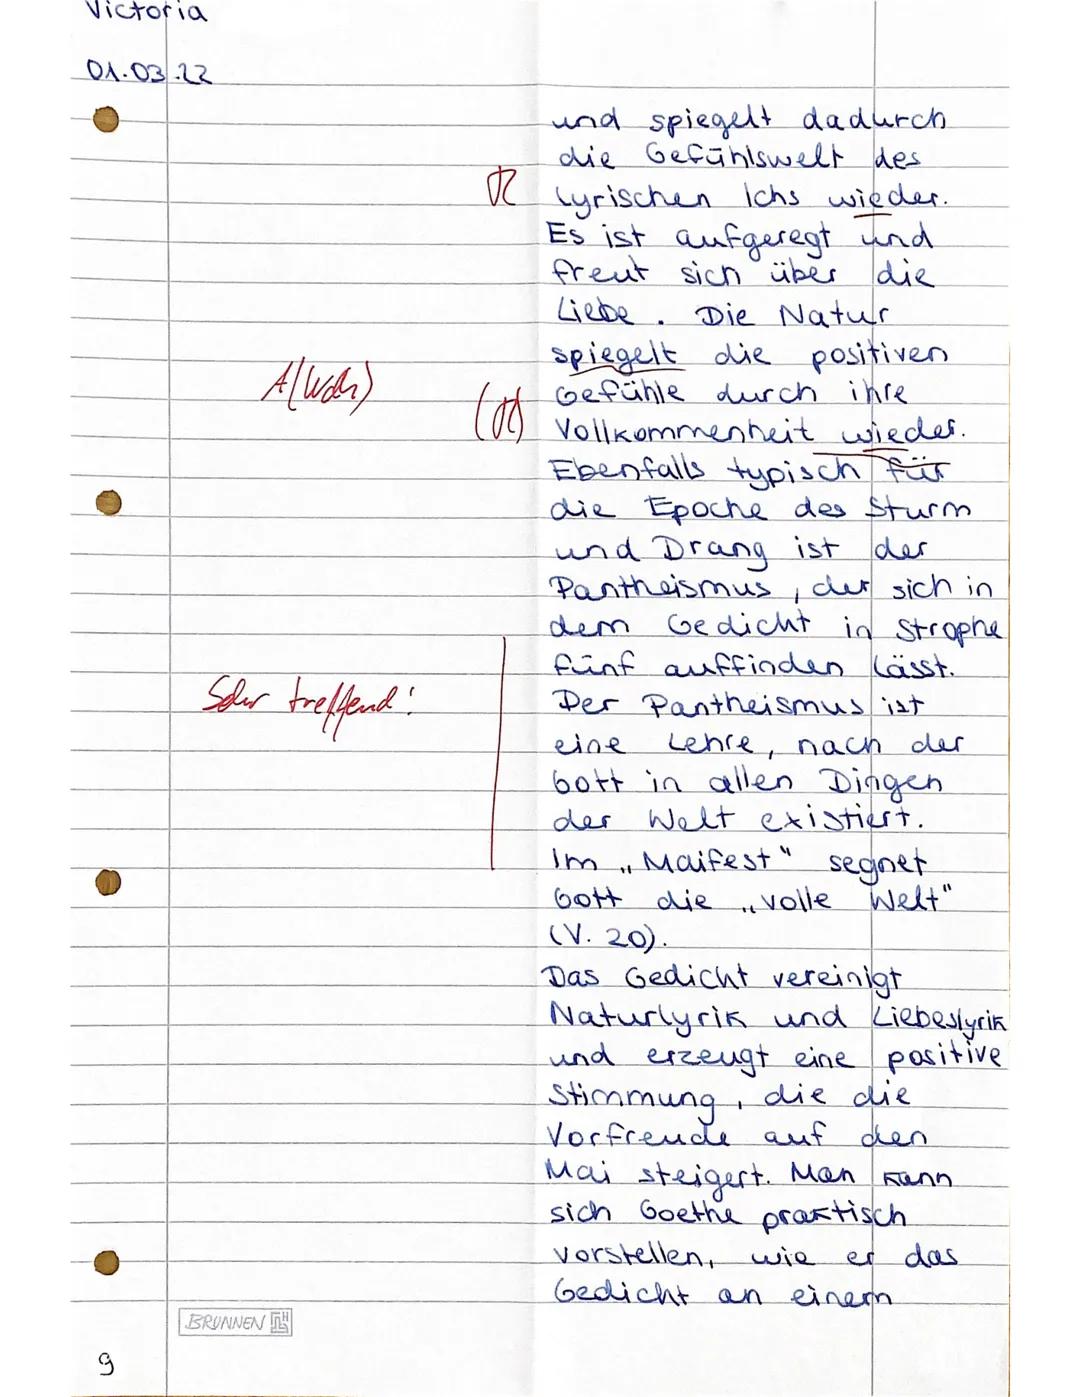 Victoria
01.03.22
und spiegelt dadurch
die Gefühlswelt des
R lyrischen Ichs wieder.
Es ist aufgeregt und
freut sich über die
Liebe. Die Natur
spiegelt die positiven
A(Wdh) (R) Gefühle durch ihre
Vollkommenheit wieder.
Ebenfalls typisch für
die Epoche des Sturm
und Drang ist der
Pantheismus, der sich in
dem Gedicht in Strophe
fünf auffinden lässt.
Sehr treffend! Der Pantheismus ist
eine Lehre, nach der
Gott in allen Dingen
der Welt existiert.
Im „Maifest" segnet
Gott die „volle Welt"
(V. 20).
Das Gedicht vereinigt
Naturlyrik und Liebeslyrik
und erzeugt eine positive
Stimmung, die die
Vorfreude auf den
Mai steigert. Man kann
sich Goethe praktisch
vorstellen, wie er das
Gedicht an einem
BRUNNEN
9